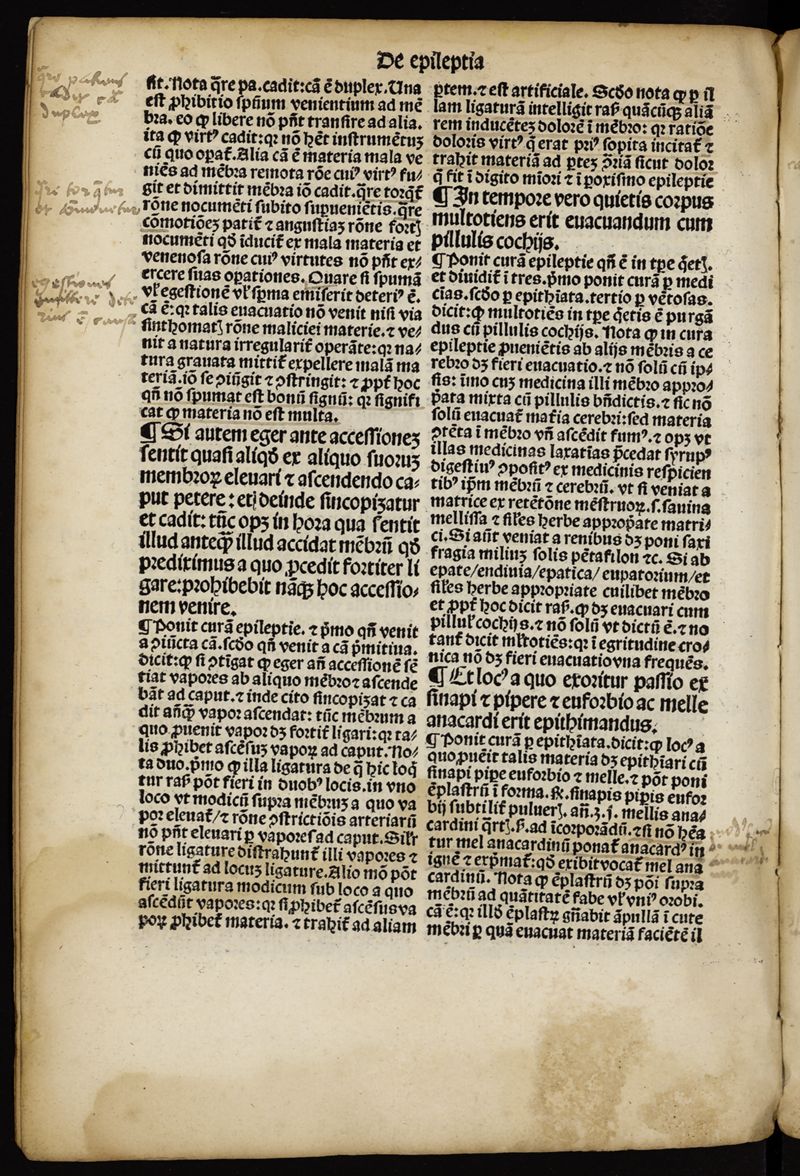 De epileptia
fit. Nota q̃re pa. cadit: cã ẽ duplex. Una
est ꝓhibitio spũum venientium ad mẽ
bra. eo ꝙ libere nõ pñt transire ad alia.
ita ꝙ virtꝰ cadit: qꝛ nõ hẽt instrumẽtuꝫ
cũ quo opat᷑. Alia cã ẽ materia mala ve
niẽs ad mẽbra remota rõe cuiꝰ virtꝰ fu⸗
git et dimittit mẽbra iõ cadit. q̃re torq̃t᷑
rõne nocumẽti subito supueniẽtis. q̃re
cõmotiões patit᷑ ⁊ angustias rõne fortꝭ
nocumẽti qď iducit᷑ ex mala materia et
venenosa rõne cuiꝰ virtutes nõ pñt ex⸗
ercere suas opationes. Quare si spumã
vl᷑ egestionẽ vl᷑ spma emiserit deteriꝰ ẽ.
cã ẽ: qꝛ talis euacuatio nõ venit nisi via
sinthomatꝭ rõne maliciei materie. ⁊ ve⸗
nit a natura irregularit᷑ operãte: qꝛ na⸗
tura grauata mittit᷑ expellere malã ma
teriã. iõ se ꝯiũgit ⁊ ꝯstringit: ⁊ ꝓpt᷑ hoc
qñ nõ spumat est bonũ signũ: qꝛ signifi
cat ꝙ materia nõ est multa.
¶ Si autem eger ante accessiones
sentit quasi aliqď ex aliquo suoruꝫ
membroꝝ eleuari ⁊ ascendendo ca⸗
put petere: etꝭ deinde sincopizatur
et cadit: tũc opꝫ in hora qua sentit
illud anteꝙ̃ illud accidat mẽbrũ qď
prediximus a quo ꝓcedit fortiter li
gare: prohibebit nãꝙꝫ hoc accessio⸗
nem venire.
¶ Ponit curã epileptie. ⁊ pͥmo qñ venit
a ꝯiũcta cã. scďo qñ venit a cã pͥmitiua.
dicit: ꝙ si ꝯtĩgat ꝙ eger añ accessionẽ sẽ
tiat vapores ab aliquo mẽbro ⁊ ascende
bãt ad caput. ⁊ inde cito sincopizat ⁊ ca
dit añꝙ̃ vapor ascendat: tũc mẽbrum a
quo ꝓuenit vapor dꝫ fortit᷑ ligari: qꝛ ta⸗
lis ꝓhibet ascẽsuꝫ vapoꝝ ad caput. No⸗
ta duo. pͥmo ꝙ illa ligatura de q̃ hic loq̃
tur ras᷑ põt fieri in duobꝰ locis. in vno
loco vt modicũ supra mẽbruꝫ a quo va
por eleuat᷑ / ⁊ rõne ꝯstrictiõis arteriarũ
nõ pñt eleuari ꝑ vapores ad caput. Sil᷑r
rõne ligature distrahunt᷑ illi vapores ⁊
mittunt᷑ ad locuꝫ ligature. Alio mõ põt
fieri ligatura modicum sub loco a quo
ascẽdũt vapores: qꝛ si ꝓhibet᷑ ascẽsus va
poꝝ ꝓhibet᷑ materia. ⁊ trahit᷑ ad aliam
ꝑtem. ⁊ est artificiale. Scďo nota ꝙ ꝑ il
lam ligaturã intelligit ras᷑ quãcũꝙꝫ aliã
rem inducẽteꝫ dolorẽ ĩ mẽbro: qꝛ ratiõe
doloris virtꝰ q̃ erat priꝰ sopita incitat᷑ ⁊
trahit materiã ad ꝑteꝫ ꝓpriã sicut dolor
q̃ fit ĩ digito miori ⁊ ĩ ꝓximo epileptie
¶ In tempore vero quietis corpus
multotiens erit euacuandum cum
pillulis cochijs.
¶ Ponit curã epileptie qñ ẽ in tꝑe q̃etꝭ.
et diuidit᷑ ĩ tres. pͥmo ponit curã ꝑ medi
cĩas. scďo ꝑ epithĩata. tertio ꝑ vẽtosas.
dicit: ꝙ multotiẽs in tꝑe q̃etis ẽ purgã
dus cũ pillulis cochijs. Nota ꝙ in cura
epileptie ꝓueniẽtis ab alijs mẽbris a ce
rebro dꝫ fieri euacuatio. ⁊ nõ solũ cũ ip⸗
sis: ũmo cuꝫ medicina illi mẽbro appro⸗
pͥata mixta cũ pillulis bñdictis. ⁊ sic nõ
solũ euacuat᷑ mat᷑ia cerebri: sed materia
ꝯtẽta ĩ mẽbro vñ ascẽdit fumꝰ. ⁊ opꝫ vt
illas medicinas laxatĩas ꝓcedat syrupꝰ
digestiuꝰ ꝯpositꝰ ex medicinis respicien
tibꝰ ipm mẽbrũ ⁊ cerebrũ. vt si veniat a
matrice ex retẽtõne mẽstruoꝝ. s. sauina
mellissa ⁊ sil᷑es herbe appropͥate matri⸗
ci. Si aũt veniat a renibus dꝫ poni saxi
fragia miliuꝫ solis pẽtafilon ⁊c. Si ab
epate / endiuia / epatica / eupatorium / et
sil᷑es herbe appropriate cuilibet mẽbro
et ꝓpt᷑ hoc dicit ras᷑. ꝙ dꝫ euacuari cum
pillul᷑ cochijs. ⁊ nõ solũ vt dictũ ẽ. ⁊ no
tant᷑ dicit ml᷑totiẽs: qꝛ ĩ egritudine cro⸗
nica nõ dꝫ fieri euacuatio vna frequẽs.
¶ Et locꝰ a quo exoritur passio ex
sinapi ⁊ pipere ⁊ euforbio ac melle
anacardi erit epithimandus.
¶ Ponit curã ꝑ epithĩata. dicit: ꝙ locꝰ a
quo ꝓuẽit talis materia dꝫ epithĩari cũ
sinapi pipe euforbio ⁊ melle. ⁊ põt poni
ẽplastrũ ĩ forma. ℞. sinapis pipis eufor
bij subtilit᷑ pulueꝝ. añ. ʒ. j. mellis ana⸗
cardini q̃rtꝭ. s᷑. ad ĩcorporãdũ. ⁊ si nõ hẽa
tur mel anacardinũ ponat᷑ anacardꝰ in
ignẽ ⁊ expͥmat᷑: qď exibit vocat᷑ mel ana
cardinũ. Nota ꝙ ẽplastrũ dꝫ põi supra
mẽbrũ ad quãtitatẽ fabe vl᷑ vniꝰ orobi.
cã ẽ: qꝛ illď ẽplastꝝ gñabit ãpullã ĩ cute
mẽbri ꝑ quã euacuat materiã faciẽtẽ il